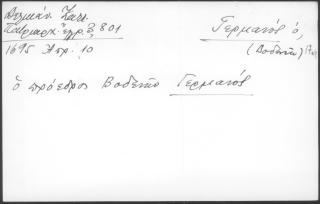 Δελικάν. Κατ.
Πατριαρχ. ἔγγρ. 3, 801
1695 Ἀπρ. 10
Γερμανός ὁ,
(Βοδενῶν)
ὁ πρόεδρος Βοδενῶν Γερμανός